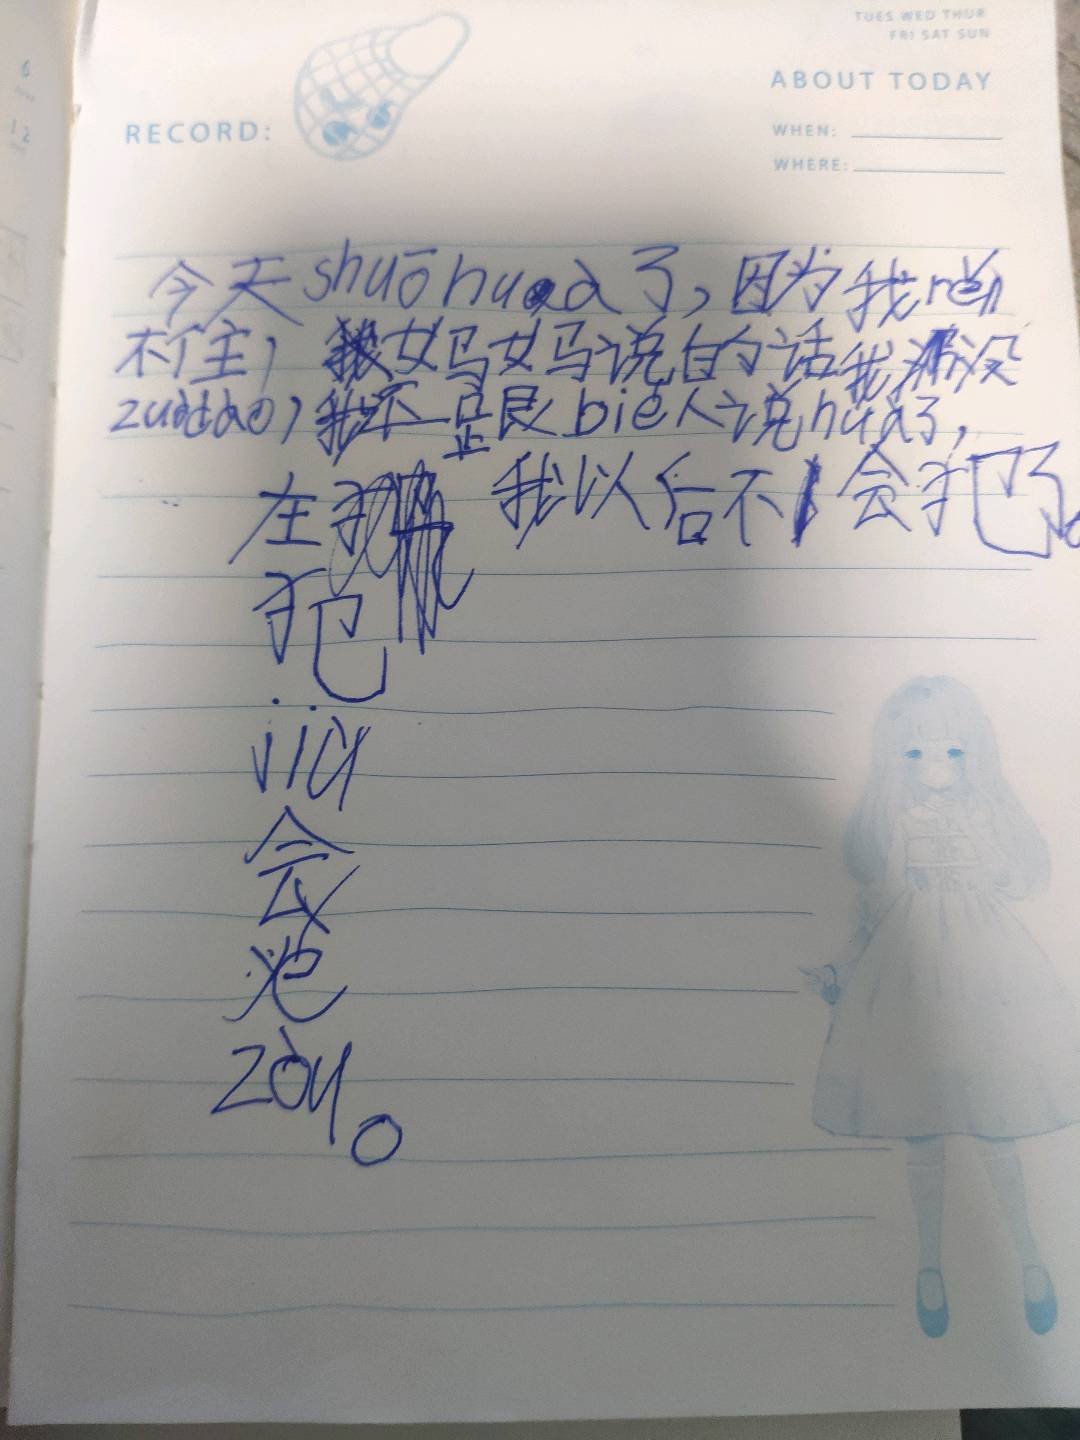 TUES WED THUR
FRI SAT SUN
ABOUT TODAY
RECORD:
WHEN:
WHERE:
今天shuōhuà了，因为我rěn
不住，妈妈说的话我没
zuòdào，我还一是跟bié人说huà了，
我以后不会犯了。
在
犯
jiù
会
爬
zòu。
6
12